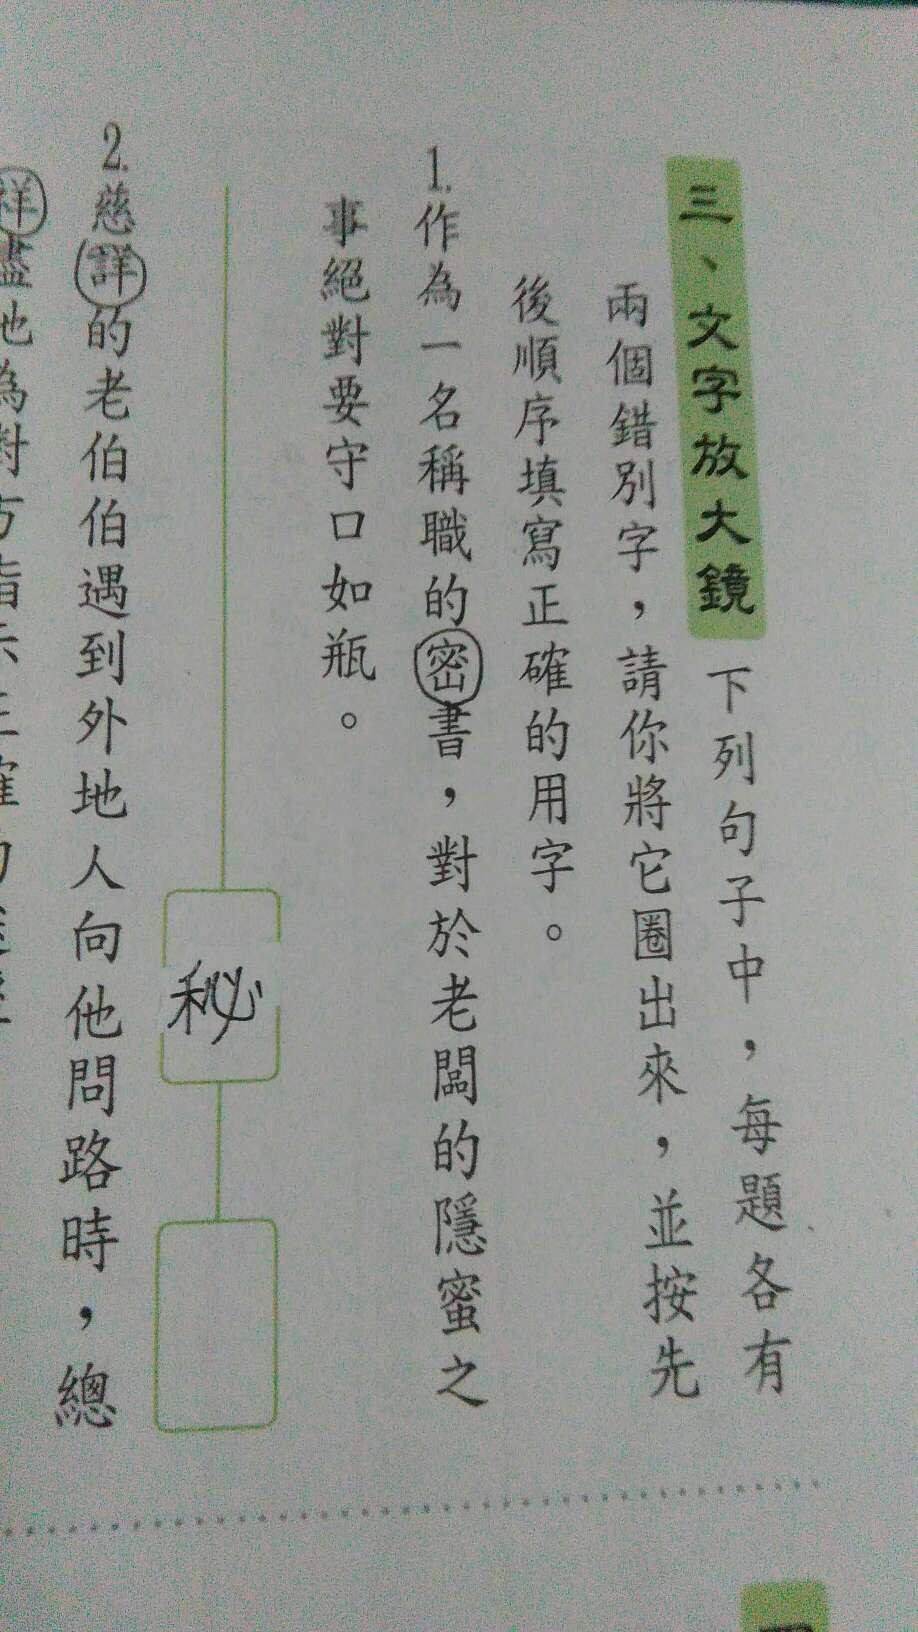 三、文字放大鏡 下列句子中，每題各有
兩個錯別字，請你將它圈出來，並按先
後順序填寫正確的用字。
1.作為一名稱職的密書，對於老闆的隱蜜之
事絕對要守口如瓶。
秘
2.慈詳的老伯伯遇到外地人向他問路時，總
祥盡地為對方指示正確的